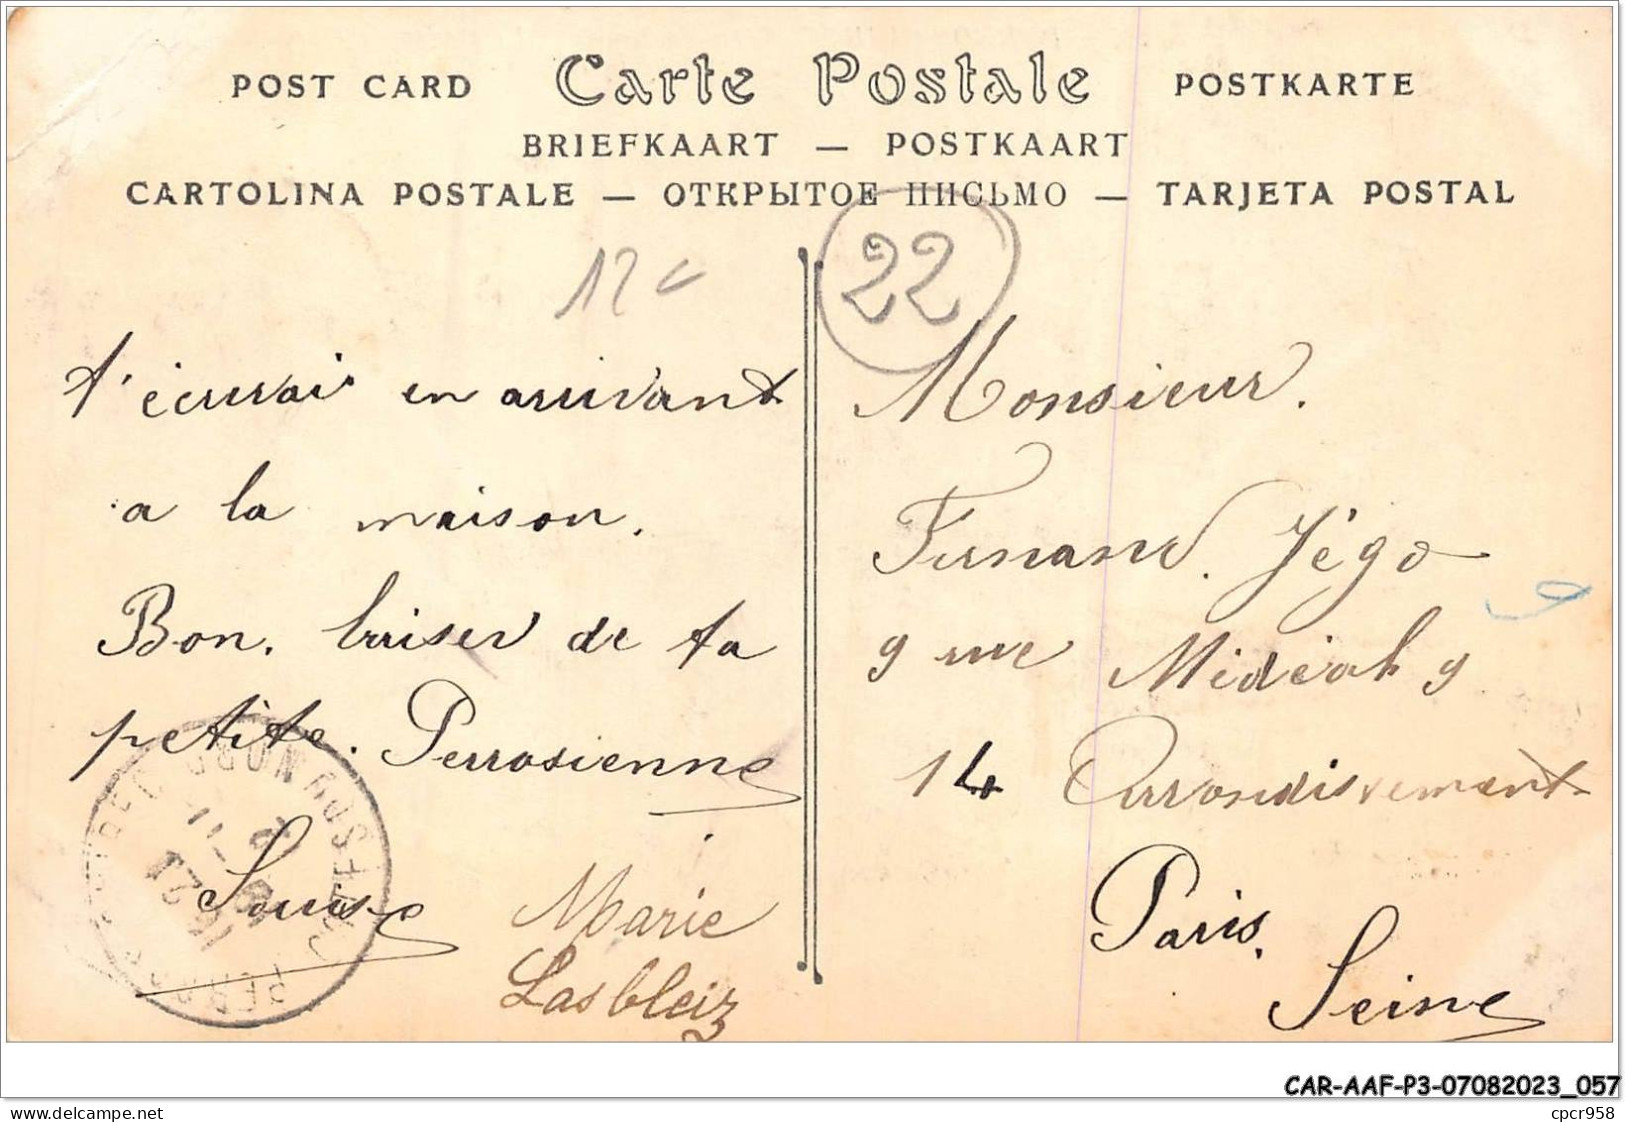 POST CARD Carte Postale POSTKARTE
BRIEFKAART — POSTKAART
CARTOLINA POSTALE — ОТКРЫТОЕ ПИСЬМО — TARJETA POSTAL
22
t'écrirai en arrivant
a la maison.
Bon. baiser de ta
petite. Perrosienne
Louise
Marie
Lasbleiz
Monsieur.
Fernand. Jégo
9 rue Midéah 9
14 Arrondisvement
Paris.
Seine
CAR-AAF-P3-07082023_057
www.delcampe.net
cpcr958